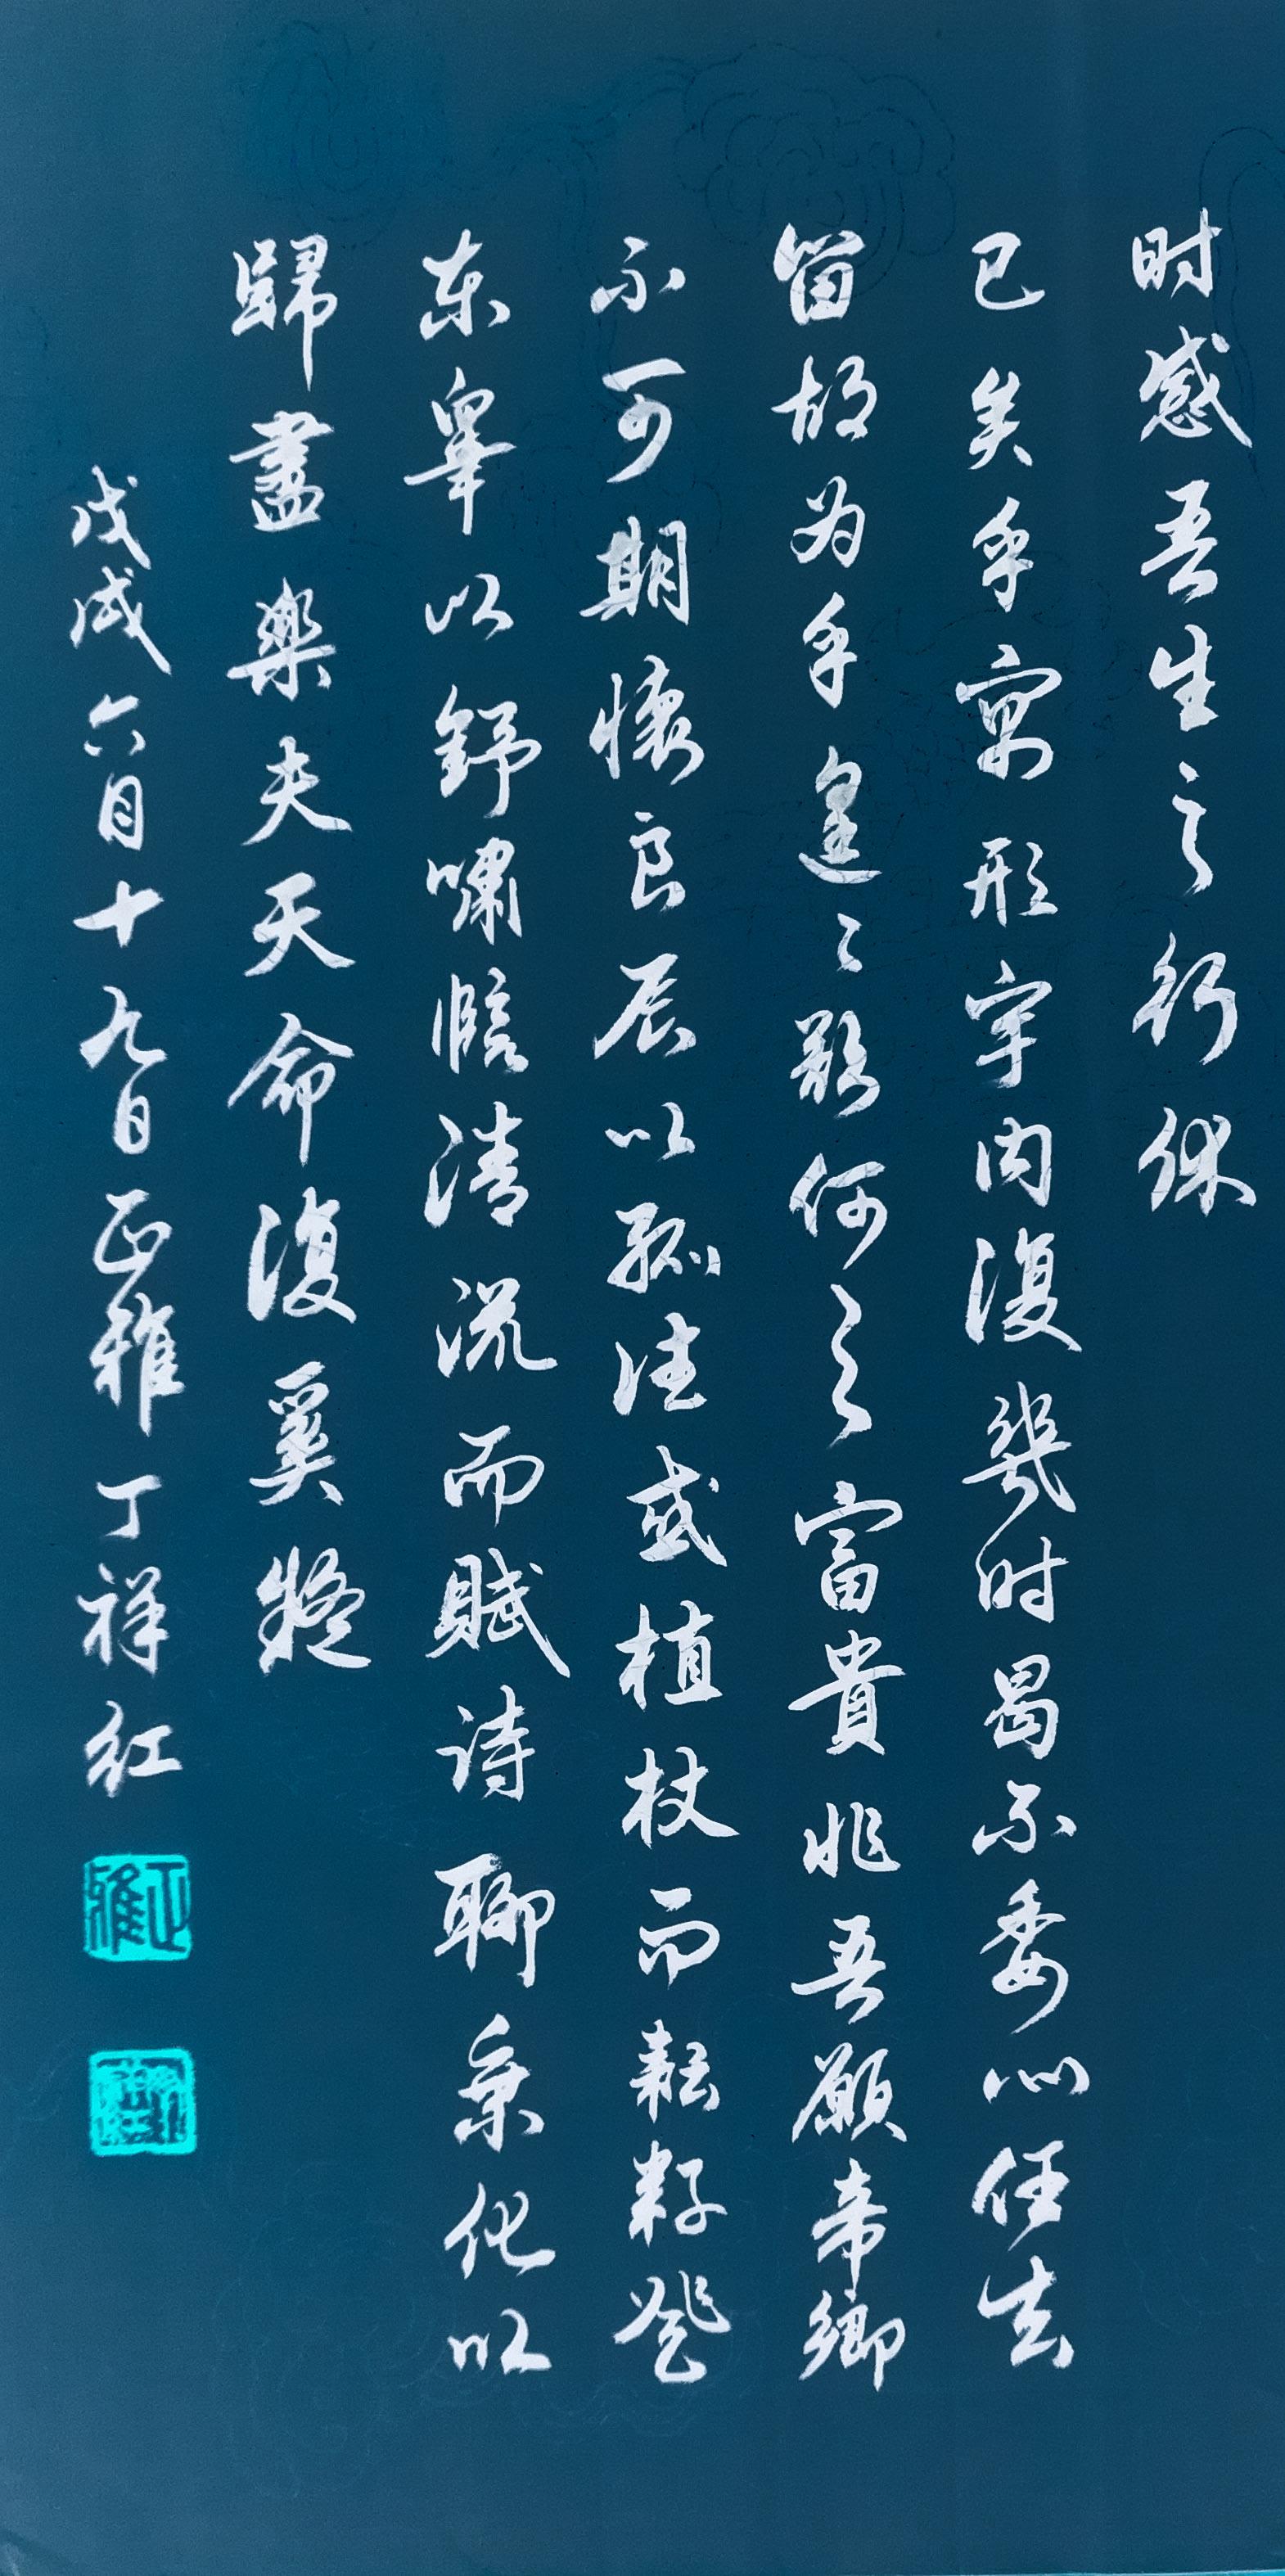 时感吾生之行休
已矣乎寓形宇内復幾时曷不委心任去
留胡为乎遑〻欲何之富貴非吾願帝鄉
不可期懷良辰以孤往或植杖而耘耔登
东皋以舒嘯臨清流而賦诗聊乘化以
歸盡樂夫天命復奚疑
戊戌六月十九日正雅丁祥红
正雅